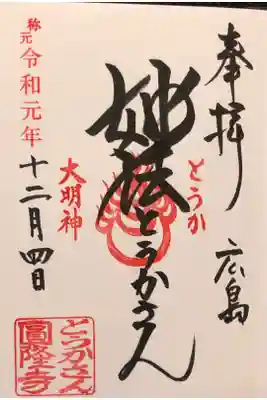 奉拝 広島
とうか
妙法とうかさん
大明神
称元 令和元年
十二月四日
とうかさん
圓隆寺